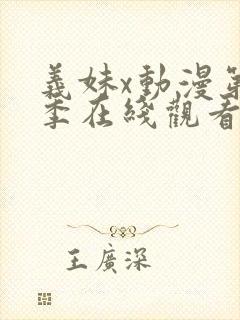 義妹x動漫第
季在綫觀看
王廣深